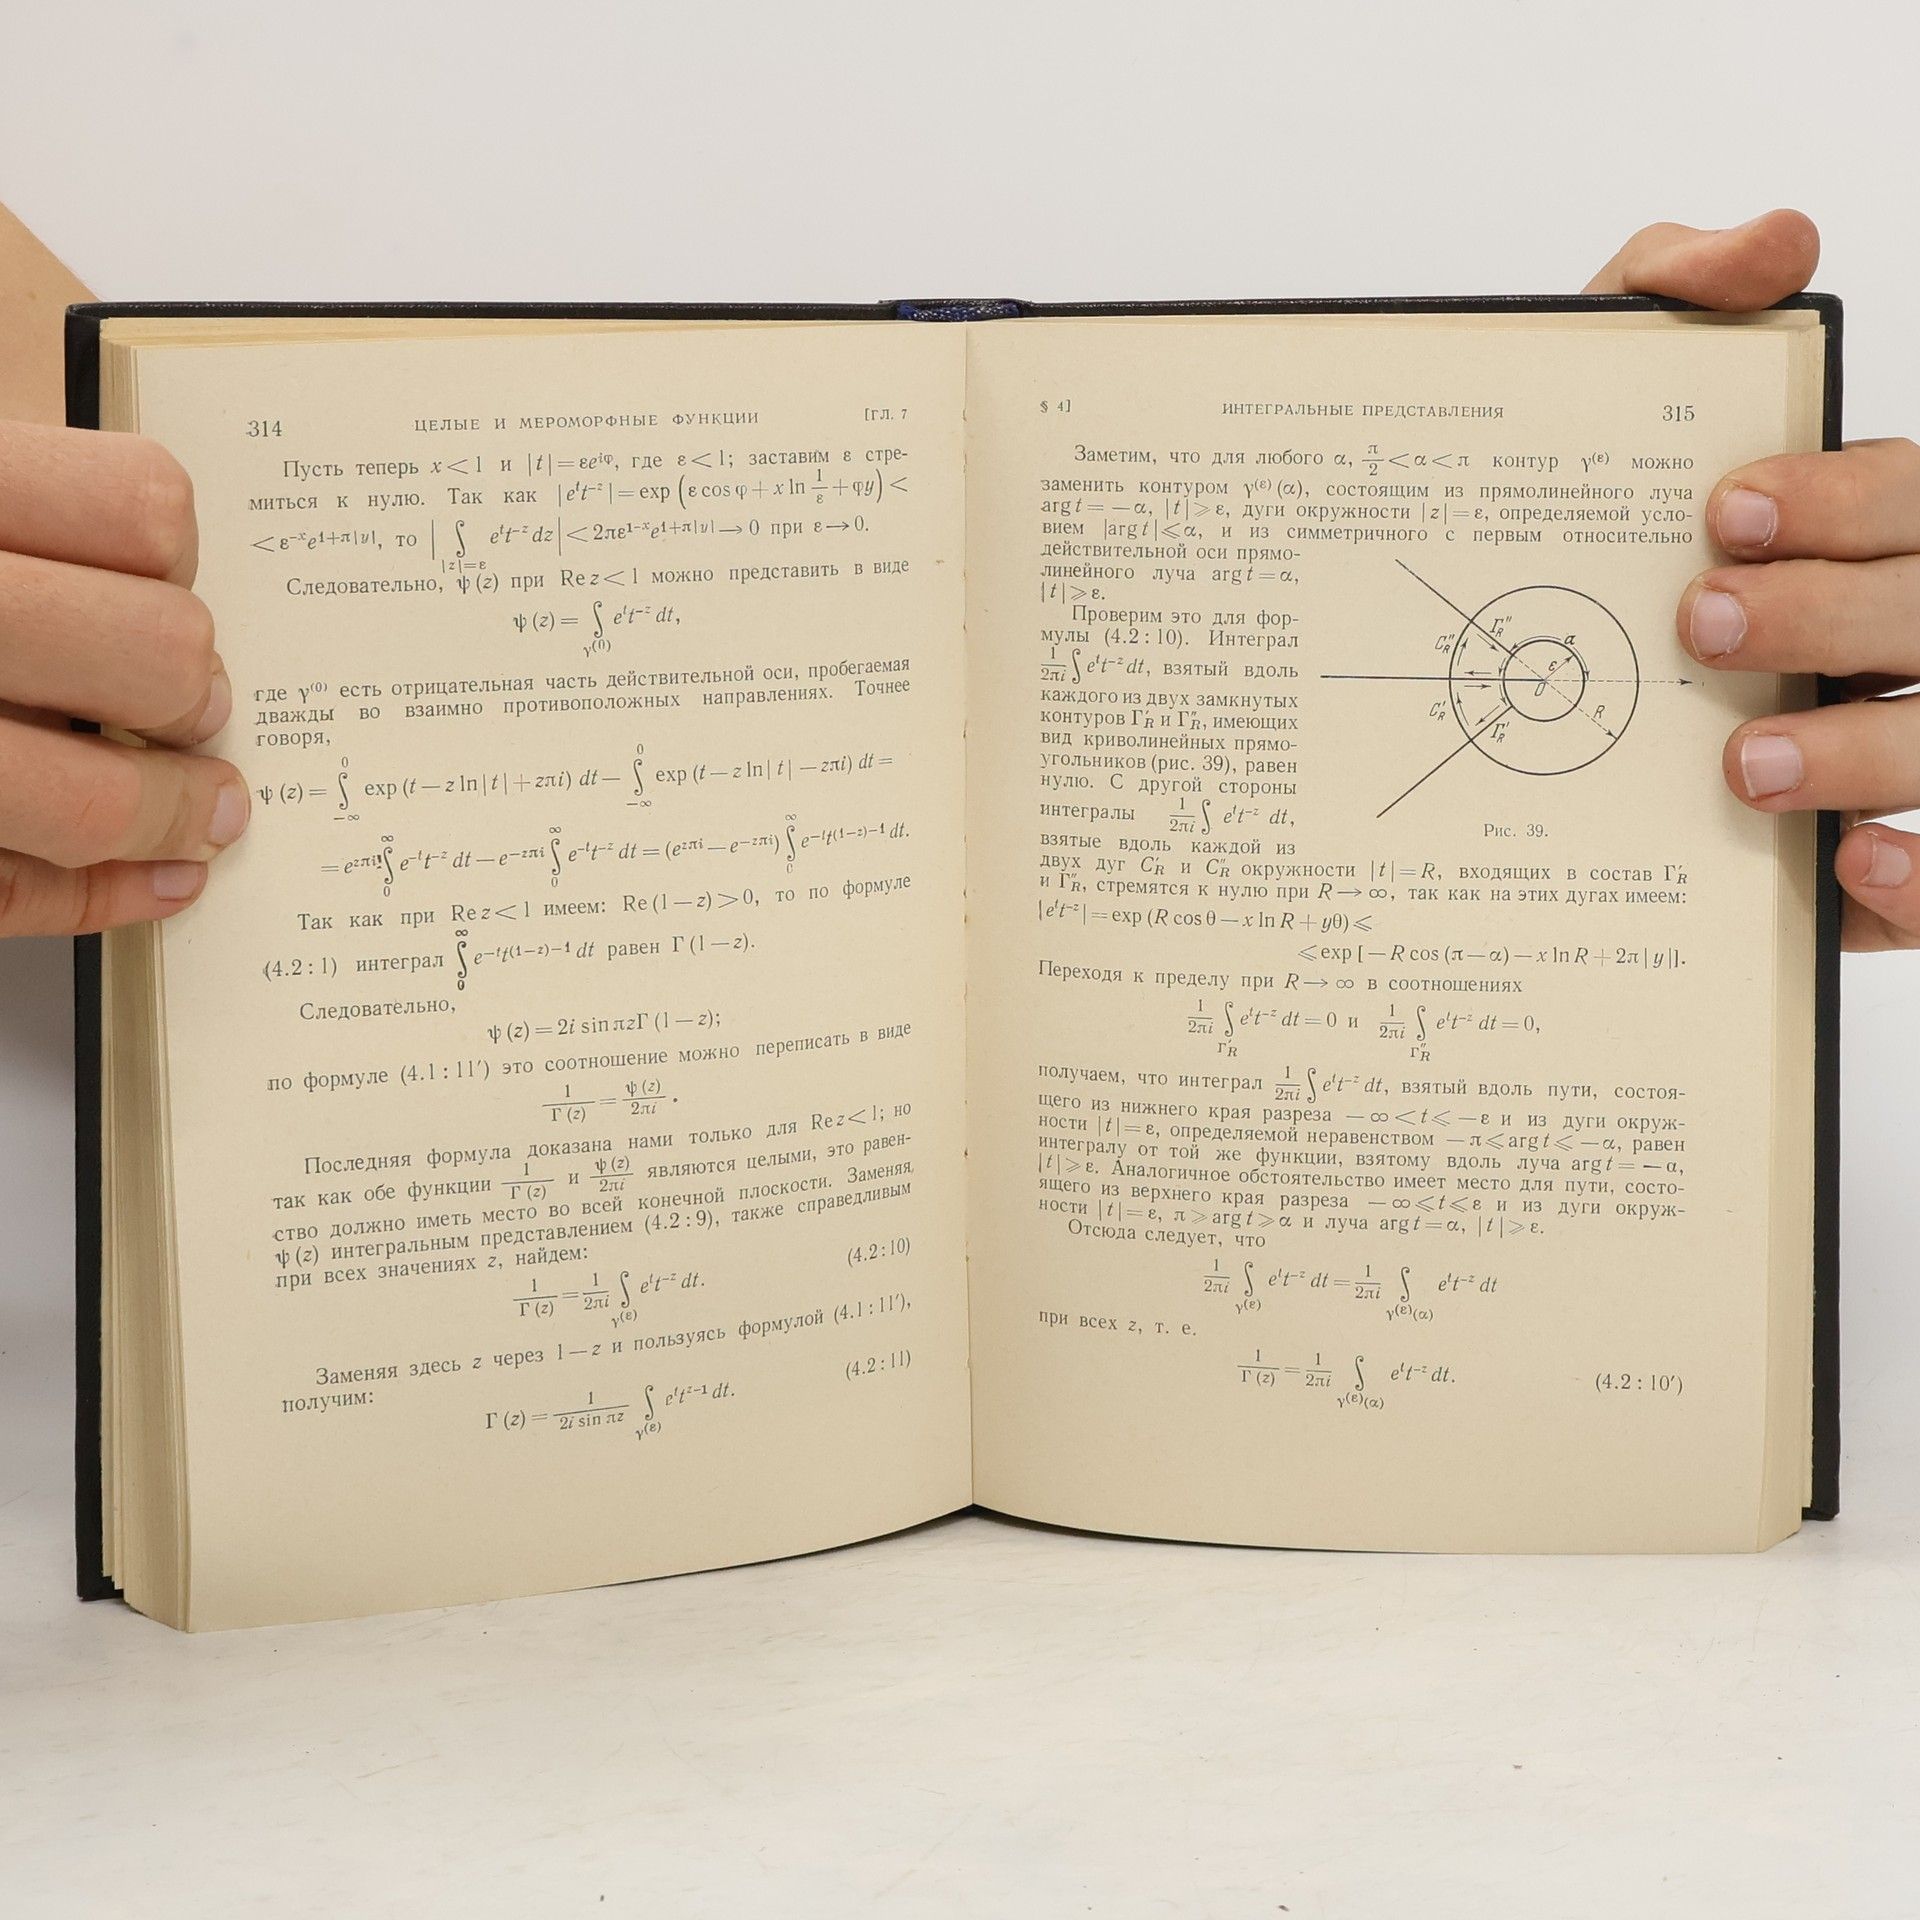 314 ЦЕЛЫЕ И МЕРОМОРФНЫЕ ФУНКЦИИ [ГЛ. 7
Пусть теперь x < 1 и |t| = εe^{iφ}, где ε < 1; заставим ε стре-
миться к нулю. Так как |e^t t^{-z}| = exp (ε cos φ + x ln 1/ε + φy) <
< ε^{-x}e^{1+π|y|}, то |∫_{|z|=ε} e^t t^{-z} dz| < 2πε^{1-x}e^{1+π|y|} → 0 при ε → 0.
Следовательно, ψ (z) при Re z < 1 можно представить в виде
ψ (z) = ∫_{γ^{(0)}} e^t t^{-z} dt,
где γ^{(0)} есть отрицательная часть действительной оси, пробегаемая
дважды во взаимно противоположных направлениях. Точнее
говоря,
ψ (z) = ∫_{-∞}^{0} exp (t — z ln |t| + zπi) dt — ∫_{-∞}^{0} exp (t — z ln| t| — zπi) dt =
= e^{zπi} ∫_0^∞ e^{-t} t^{-z} dt — e^{-zπi} ∫_0^∞ e^{-t} t^{-z} dt = (e^{zπi} — e^{-zπi}) ∫_0^∞ e^{-t} t^{(1-z)-1} dt.
Так как при Re z < 1 имеем: Re (1 — z) > 0, то по формуле
(4.2 : 1) интеграл ∫_0^∞ e^{-t} t^{(1-z)-1} dt равен Γ (1 — z).
Следовательно,
ψ (z) = 2i sin πzΓ (1 — z);
по формуле (4.1 : 11′) это соотношение можно переписать в виде
1/Γ (z) = ψ (z)/2πi .
Последняя формула доказана нами только для Re z < 1; но
так как обе функции 1/Γ (z) и ψ (z)/2πi являются целыми, это равен-
ство должно иметь место во всей конечной плоскости. Заменяя
ψ (z) интегральным представлением (4.2 : 9), также справедливым
при всех значениях z, найдем:
1/Γ (z) = 1/2πi ∫_{γ^{(ε)}} e^t t^{-z} dt. (4.2 : 10)
Заменяя здесь z через 1 — z и пользуясь формулой (4.1 : 11′),
получим:
Γ (z) = 1/2i sin πz ∫_{γ^{(ε)}} e^t t^{z-1} dt. (4.2 : 11)
§ 4] ИНТЕГРАЛЬНЫЕ ПРЕДСТАВЛЕНИЯ 315
Заметим, что для любого α, π/2 < α < π контур γ^{(ε)} можно
заменить контуром γ^{(ε)} (α), состоящим из прямолинейного луча
arg t = — α, |t| ⩾ ε, дуги окружности |z| = ε, определяемой усло-
вием |arg t| ⩽ α, и из симметричного с первым относительно
действительной оси прямо-
линейного луча arg t = α,
|t| ⩾ ε.
Проверим это для фор-
мулы (4.2 : 10). Интеграл
1/2πi ∫ e^t t^{-z} dt, взятый вдоль
каждого из двух замкнутых
контуров Γ′_R и Γ″_R, имеющих
вид криволинейных прямо-
угольников (рис. 39), равен
нулю. С другой стороны
интегралы 1/2πi ∫ e^t t^{-z} dt,
взятые вдоль каждой из
двух дуг C′_R и C″_R окружности |t| = R, входящих в состав Γ′_R
и Γ″_R, стремятся к нулю при R → ∞, так как на этих дугах имеем:
|e^t t^{-z}| = exp (R cos θ — x ln R + yθ) ⩽
⩽ exp [— R cos (π — α) — x ln R + 2π | y |].
Переходя к пределу при R → ∞ в соотношениях
1/2πi ∫_{Γ′_R} e^t t^{-z} dt = 0 и 1/2πi ∫_{Γ″_R} e^t t^{-z} dt = 0,
получаем, что интеграл 1/2πi ∫ e^t t^{-z} dt, взятый вдоль пути, состоя-
щего из нижнего края разреза — ∞ < t ⩽ — ε и из дуги окруж-
ности |t| = ε, определяемой неравенством — π ⩽ arg t ⩽ — α, равен
интегралу от той же функции, взятому вдоль луча arg t = — α,
|t| ⩾ ε. Аналогичное обстоятельство имеет место для пути, состо-
ящего из верхнего края разреза — ∞ ⩽ t ⩽ ε и из дуги окруж-
ности |t| = ε, π ⩾ arg t ⩾ α и луча arg t = α, |t| ⩾ ε.
Отсюда следует, что
1/2πi ∫_{γ^{(ε)}} e^t t^{-z} dt = 1/2πi ∫_{γ^{(ε)}(α)} e^t t^{-z} dt
при всех z, т. е.
1/Γ (z) = 1/2πi ∫_{γ^{(ε)}(α)} e^t t^{-z} dt. (4.2 : 10′)
C″_R Γ″_R α
ε
O
C′_R Γ′_R R
Рис. 39.